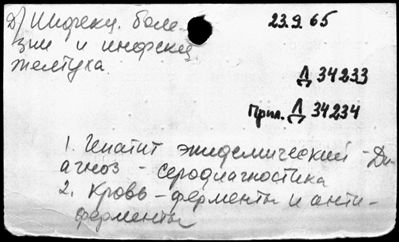 Д) Инфекц. боле-
зни и инфекц.
желтуха.
23.9.65
Д 34233
Прил. Д 34234
1. Гепатит эпидемический - Ди-
агноз - серодиагностика
2. Кровь - ферменты и анти-
ферменты